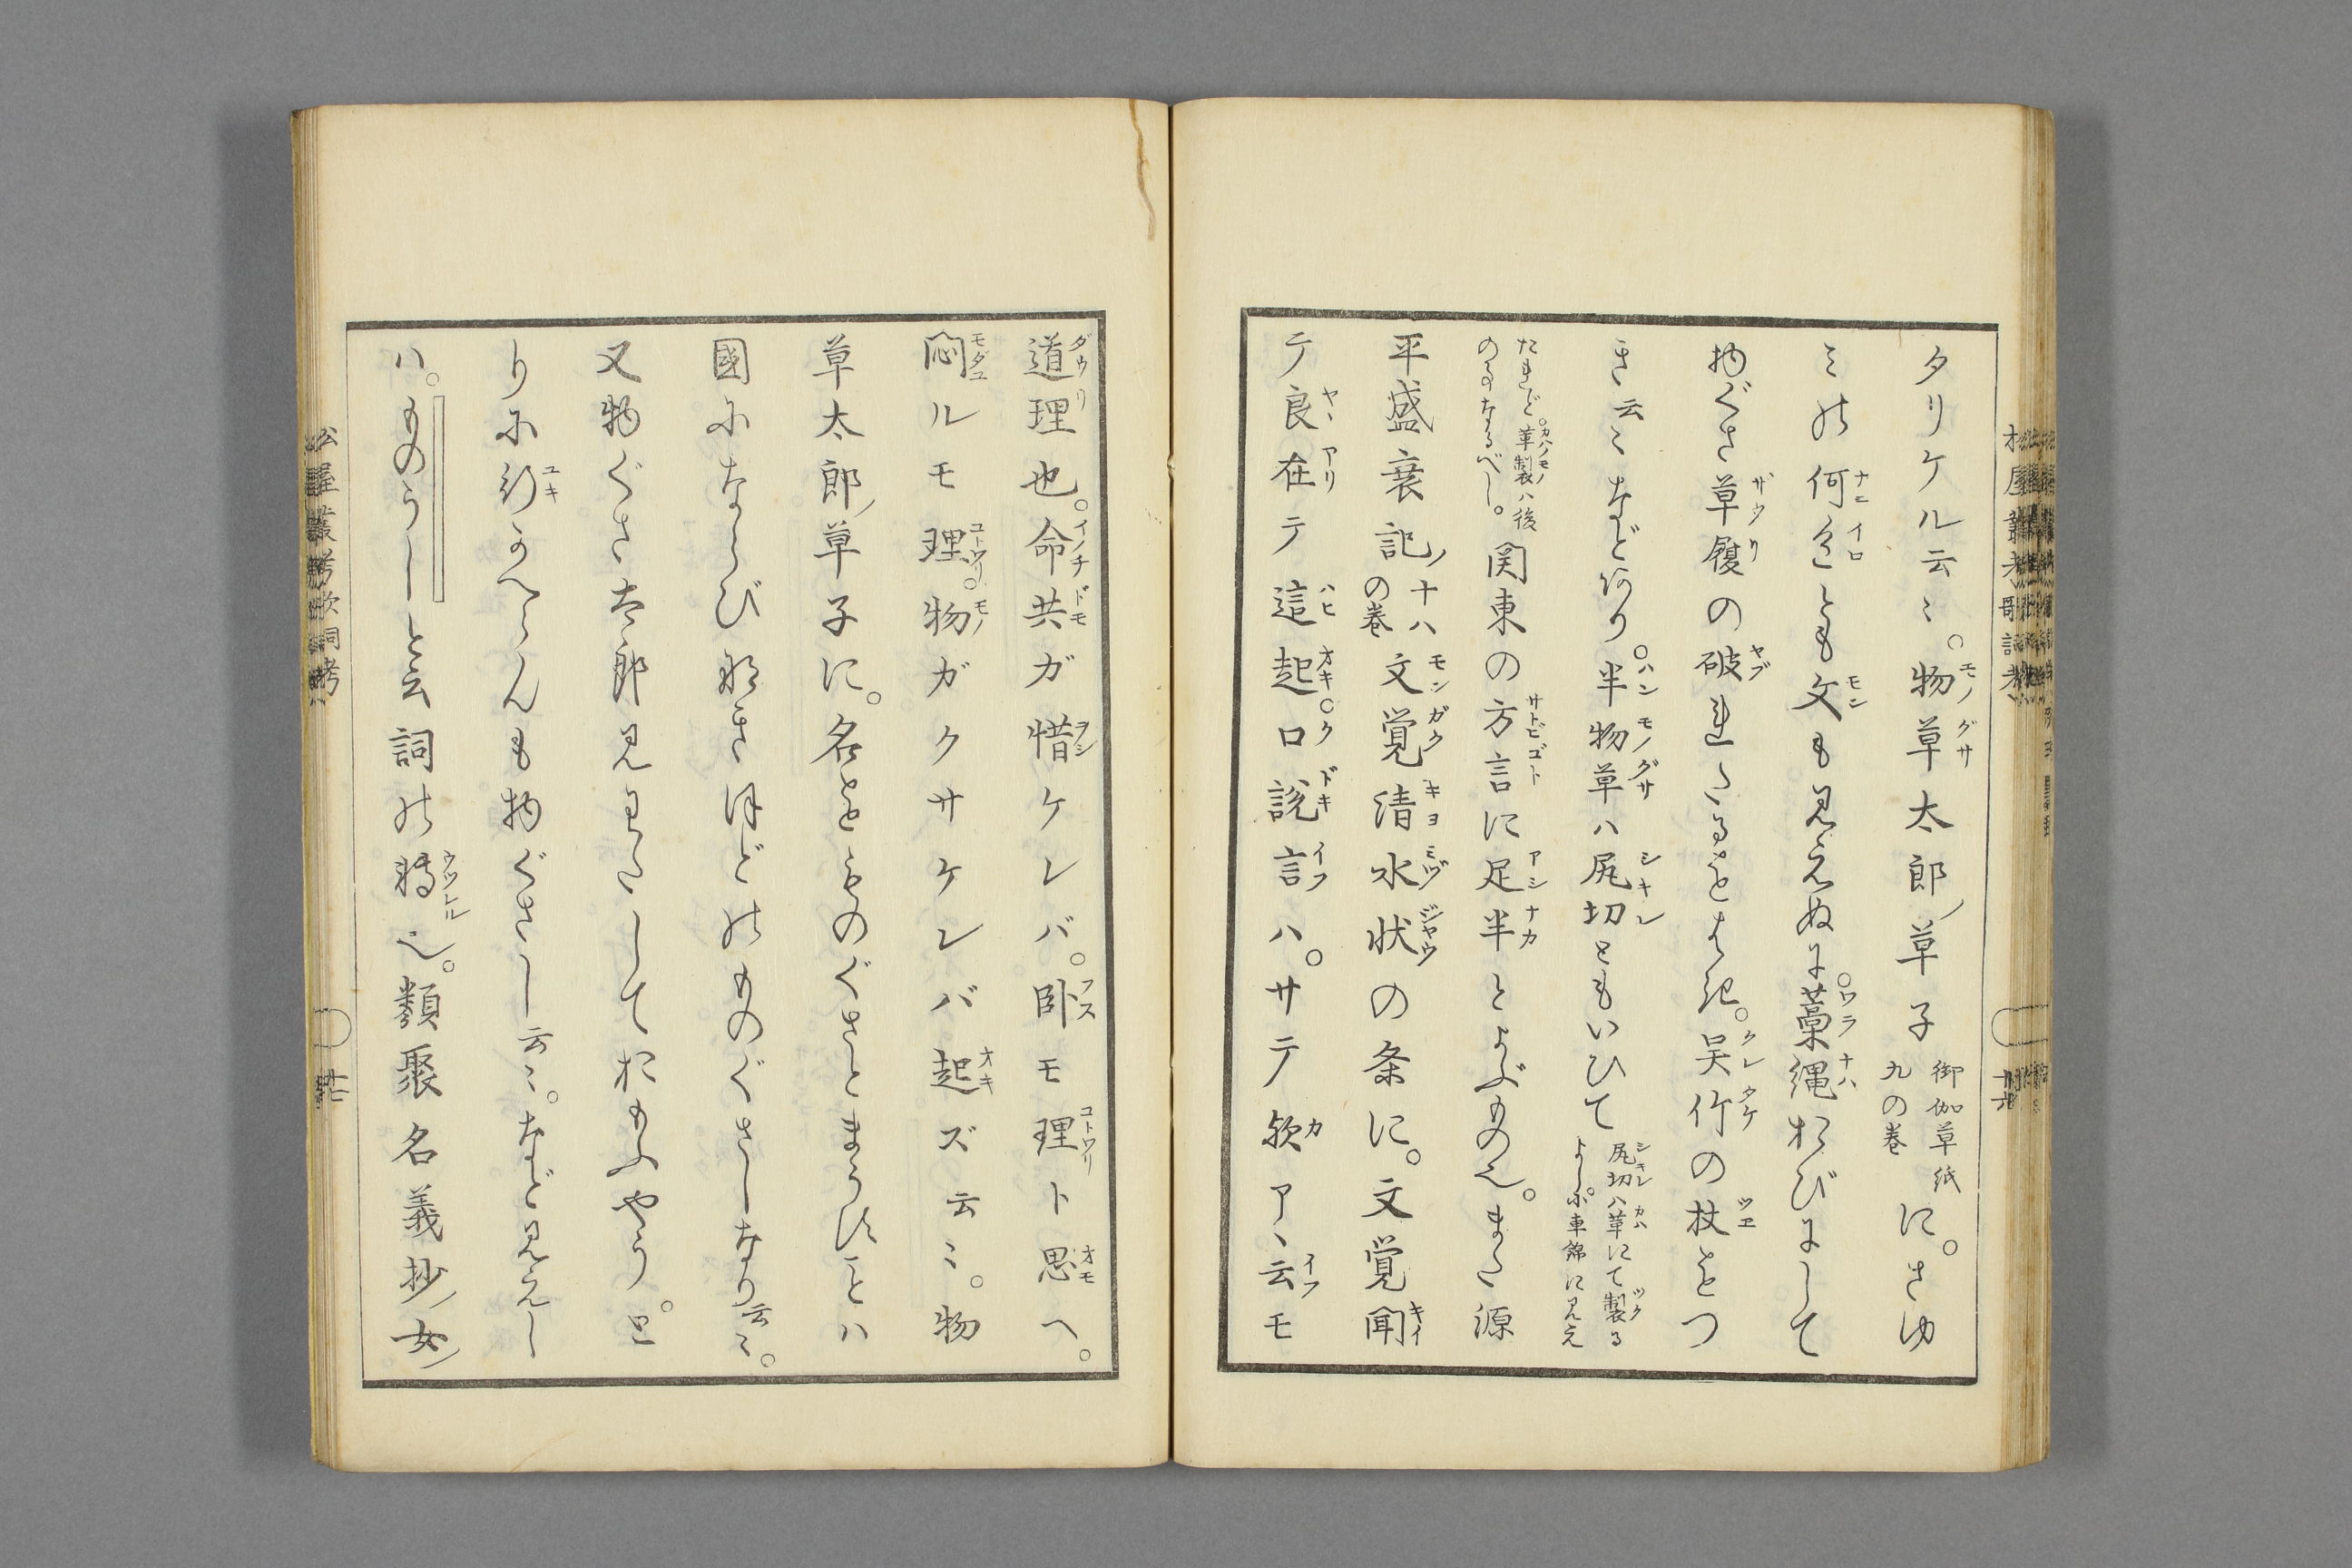 タリケル云〻。物草太郎草子御伽草紙九の巻に。さゆ
みの何色とも文も見えぬに。藁縄おびにして
物ぐさ草履の破れたるをはき。呉竹の杖をつ
き云〻などあり。半物草ハ尻切ともいひて尻切ハ革にて製るよし。小車錦に見え
たれど。革製ハ後のものなるべし。関東の方言に足半とよぶもの也。また源
平盛衰記十八の巻文覚清水状の条に。文覚聞
テ良在テ這起。口説言ハ。サテ欤アヽ云モ
道理也。命共ガ惜ケレバ。卧モ理ト思ヘ。
悶ルモ理。物ガクサケレバ起ズ云〻。物
草太郎草子に。名をものぐさとまうすことハ
國にならび那きほどのものぐさしなり云〻。
又物ぐさ太郎見まゐらして おもふやう。と
りに行かへらんも物ぐさし云〻。など見えし
ハ。ものうしと云詞の轉也。類聚名義抄女